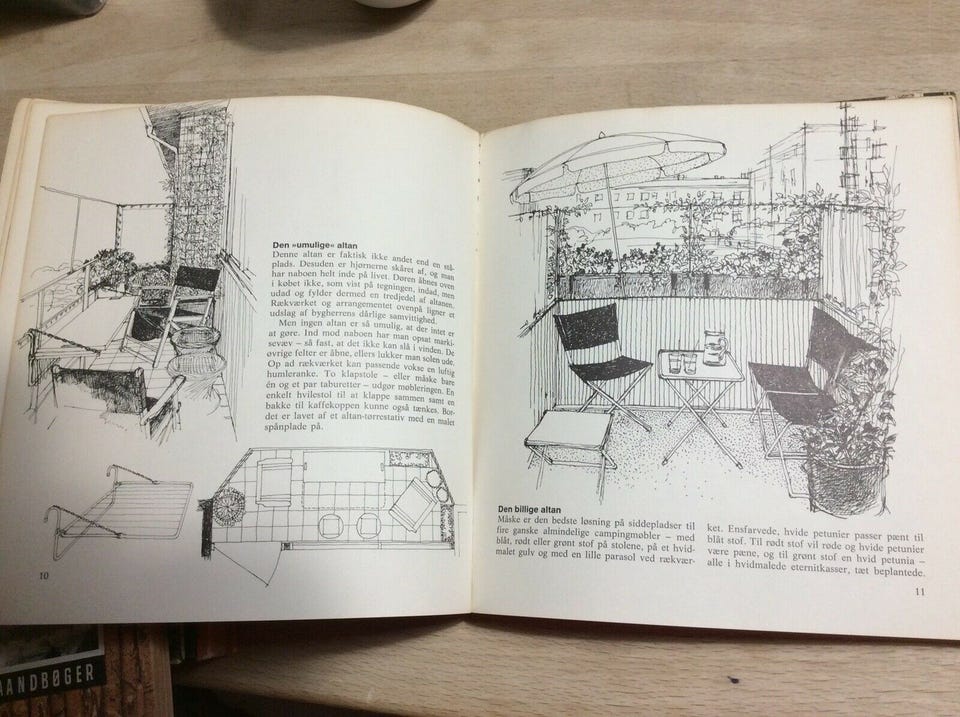 Den »umulige« altan
Denne altan er faktisk ikke andet end en stå-
plads. Desuden er hjørnerne skåret af, og man
har naboen helt inde på livet. Døren åbnes oven
i købet ikke, som vist på tegningen, indad, men
udad og fylder dermed en tredjedel af altanen.
Rækværket og arrangementet ovenpå ligner et
udslag af bygherrens dårlige samvittighed.
Men ingen altan er så umulig, at der intet er
at gøre. Ind mod naboen har man opsat marki-
sevæv – så fast, at det ikke kan slå i vinden. De
øvrige felter er åbne, ellers lukker man solen ude.
Op ad rækværket kan passende vokse en luftig
humleranke. To klapstole – eller måske bare
én og et par taburetter – udgør møbleringen. En
enkelt hvilestol til at klappe sammen samt en
bakke til kaffekoppen kunne også tænkes. Bor-
det er lavet af et altan-tørrestativ med en malet
spånplade på.
10
Den billige altan
Måske er den bedste løsning på siddepladser til
fire ganske almindelige campingmøbler – med
blåt, rødt eller grønt stof på stolene, på et hvid-
malet gulv og med en lille parasol ved rækvær-
ket. Ensfarvede, hvide petunier passer pænt til
blåt stof. Til rødt stof vil røde og hvide petunier
være pæne, og til grønt stof en hvid petunia –
alle i hvidmalede eternitkasser, tæt beplantede.
11
AANDBØGER